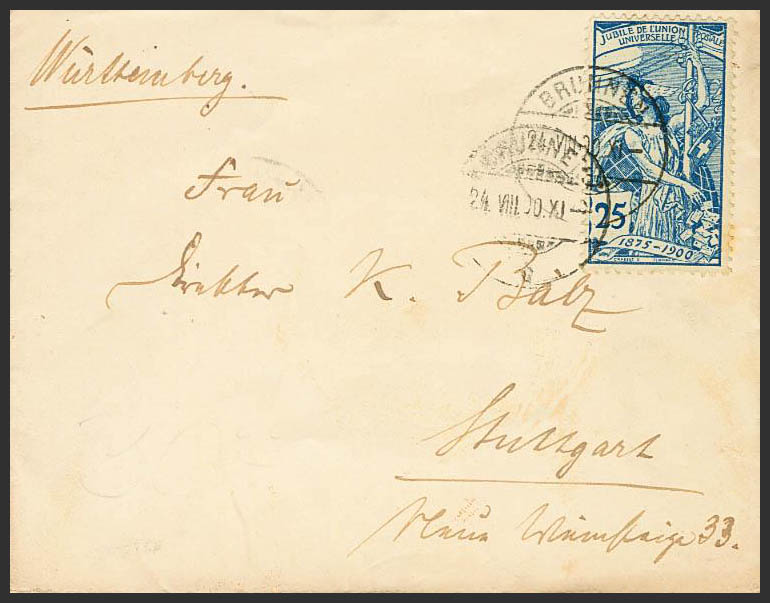 Württemberg.
JUBILÉ DE L'UNION POSTALE
UNIVERSELLE
25
1875-1900
BRUNNEN
24. VIII. 00. XI
BRUNNEN
24. VIII. 00. XI
Frau
Direktor K. Balz
Stuttgart
Neue Weinsteige 33.